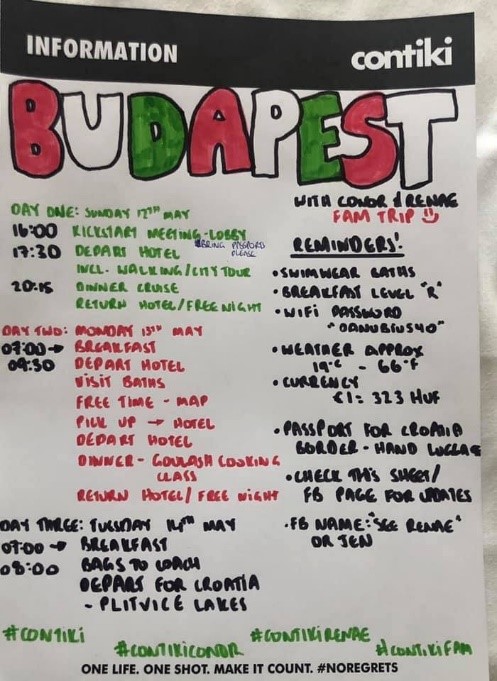 INFORMATION
contiki
BUDAPEST
WITH CONOR & RENAE
FAM TRIP
DAY ONE: SUNDAY 12TH MAY
16:00 KICKSTART MEETING - LOBBY
*BRING PASSPORD PLEASE
17:30 DEPART HOTEL
INCL. WALKING/CITY TOUR
20:15 DINNER CRUISE
RETURN HOTEL/FREE NIGHT
DAY TWO: MONDAY 13TH MAY
07:00 → BREAKFAST
09:30 DEPART HOTEL
VISIT BATHS
FREE TIME - MAP
PICK UP → HOTEL
DEPART HOTEL
DINNER - GOULASH COOKING
CLASS
RETURN HOTEL/ FREE NIGHT
DAY THREE: TUESDAY 14TH MAY
07:00 → BREAKFAST
08:00 BAGS TO COACH
DEPART FOR CROATIA
- PLITVICE LAKES
REMINDERS!
• SWIMWEAR BATHS
• BREAKFAST LEVEL "R"
• WIFI PASSWORD
"DANUBIUS40"
• WEATHER APPROX
19°C - 66°F
• CURRENCY
€1 = 323 HUF
• PASSPORT FOR CROATIA
BORDER - HAND LUGGAGE
• CHECK THIS SHEET/
FB PAGE FOR UPDATES
• FB NAME: "SEE RENAE"
OR JEN
#CONTIKI
#CONTIKICONOR
#CONTIKIRENAE
#CONTIKIFAM
ONE LIFE. ONE SHOT. MAKE IT COUNT. #NOREGRETS